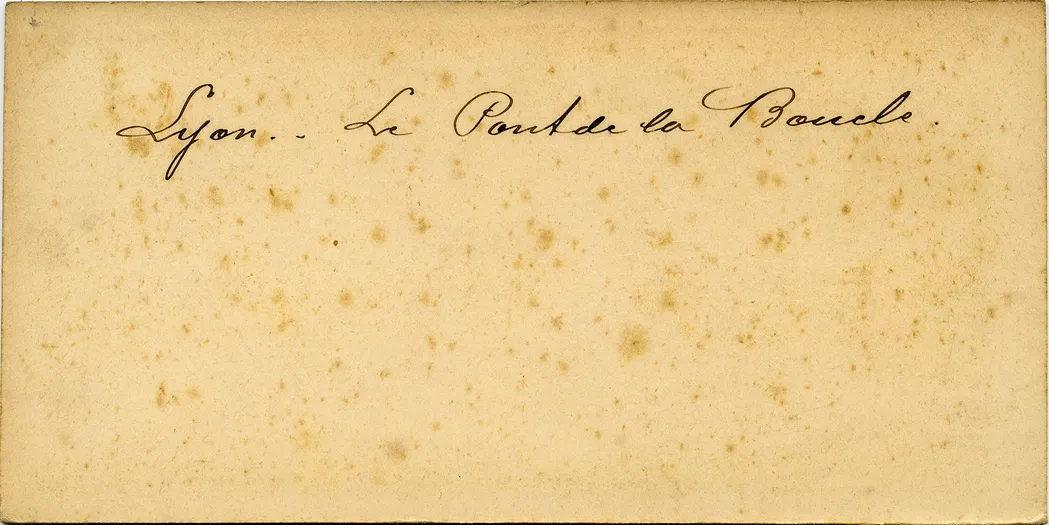 Lyon.. Le Pont de la Boucle.